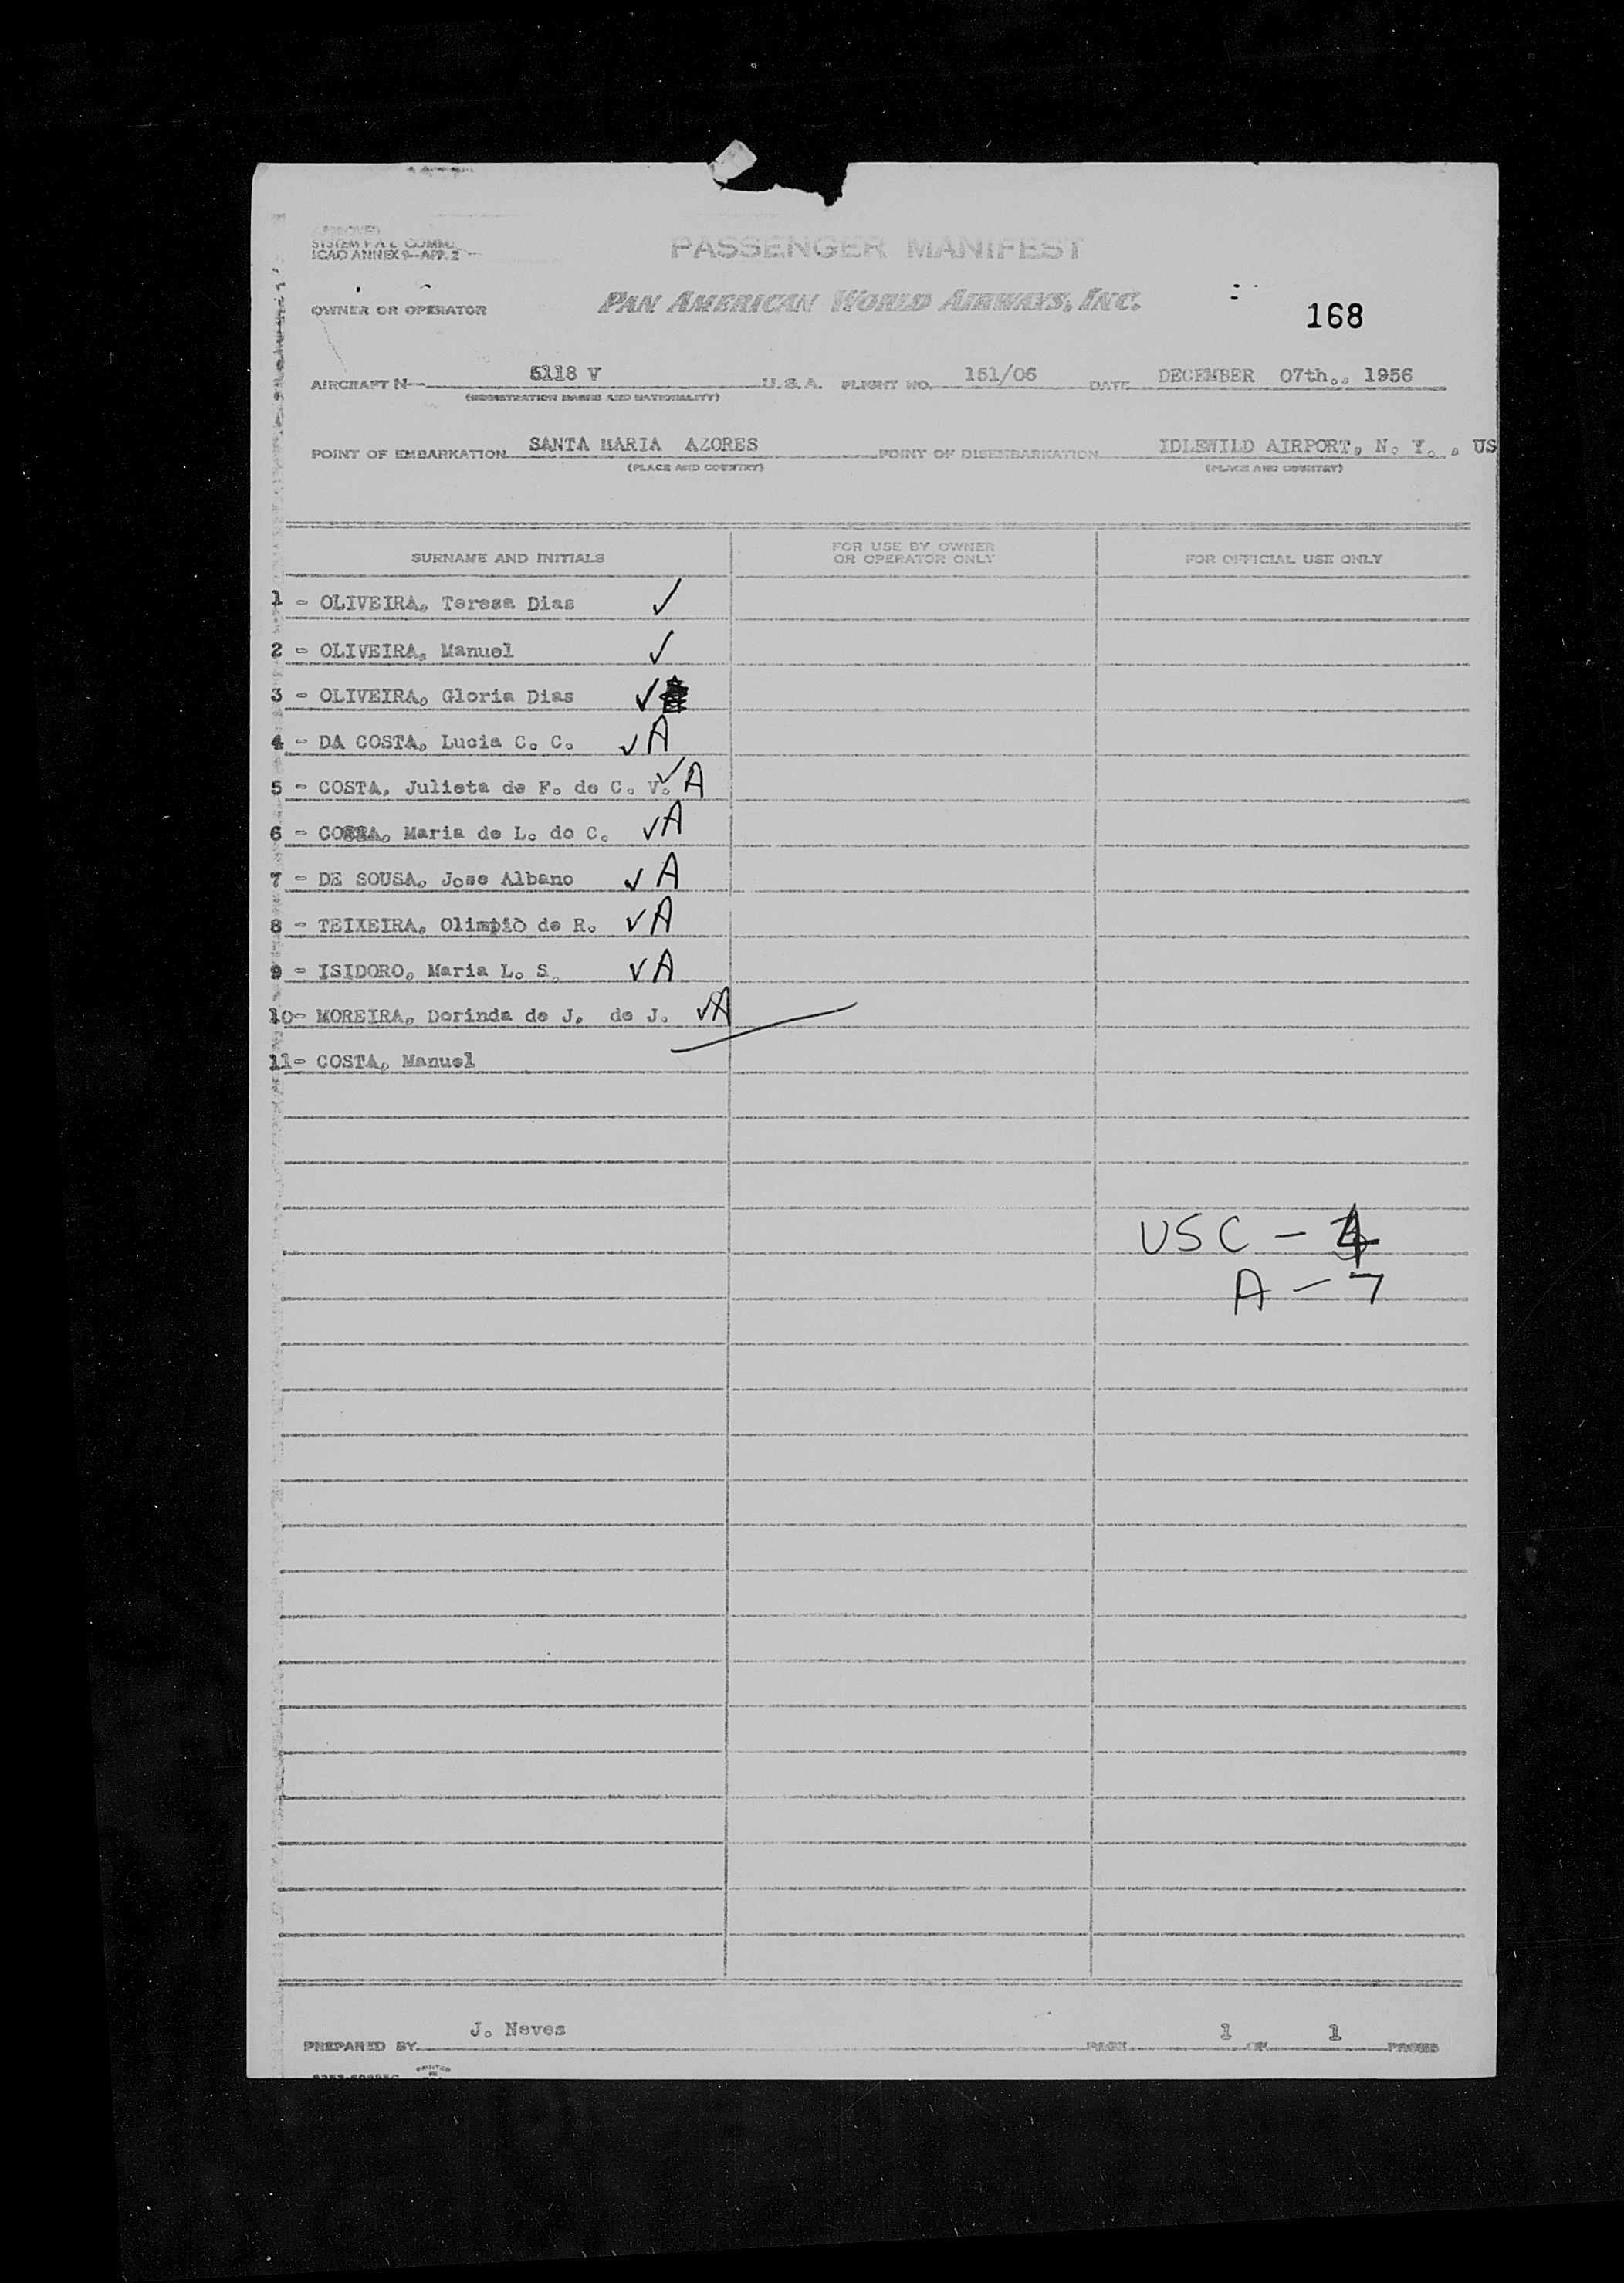 APPROVED
SYSTEM F.A.L. COMM.
ICAO ANNEX 9—APP. 2
PASSENGER MANIFEST
OWNER OR OPERATOR PAN AMERICAN WORLD AIRWAYS, INC.
168
AIRCRAFT N— 5118 V U.S.A. FLIGHT NO. 151/06 DATE DECEMBER 07th., 1956
(REGISTRATION MARKS AND NATIONALITY)
POINT OF EMBARKATION SANTA MARIA AZORES POINT OF DISEMBARKATION IDLEWILD AIRPORT, N. Y. , US
(PLACE AND COUNTRY) (PLACE AND COUNTRY)
SURNAME AND INITIALS FOR USE BY OWNER OR OPERATOR ONLY FOR OFFICIAL USE ONLY
1 - OLIVEIRA, Teresa Dias ✓
2 - OLIVEIRA, Manuel ✓
3 - OLIVEIRA, Gloria Dias ✓
4 - DA COSTA, Lucia C. C. ✓ A
5 - COSTA, Julieta de F. de C. V. ✓ A
6 - Maria de L. do C. ✓ A
7 - DE SOUSA, Jose Albano ✓ A
8 - TEIXEIRA, Olimpio de R. ✓ A
9 - ISIDORO, Maria L. S. ✓ A
10- MOREIRA, Dorinda de J. de J. ✓ A
11- COSTA, Manuel
USC - 4
A - 7
PREPARED BY J. Neves PAGE 1 OF 1 PAGES
PRINTED